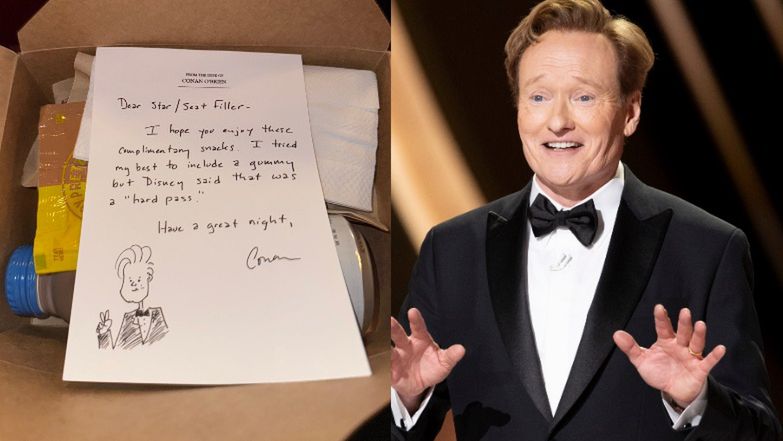 FROM THE DESK OF
CONAN O'BRIEN
Dear Star/Seat Filler-
I hope you enjoy these
complimentary snacks. I tried
my best to include a gummy
but Disney said that was
a "hard pass."
Have a great night,
Conan